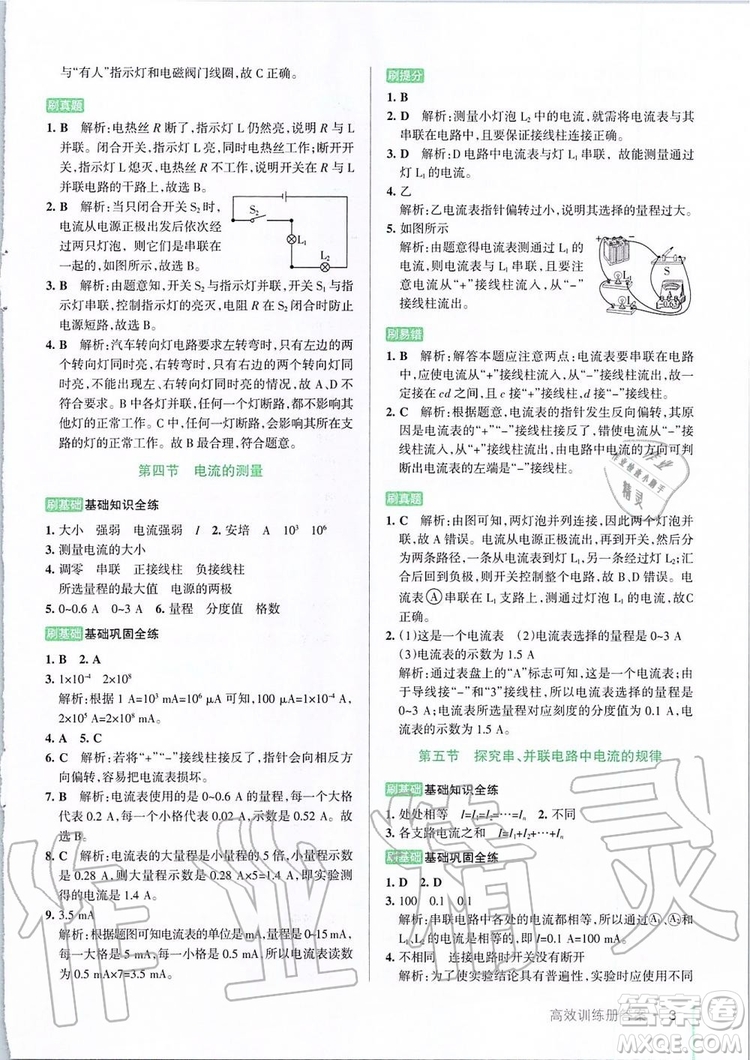 与“有人”指示灯和电磁阀门线圈,故 C 正确。
刷真题
1. B 解析:电热丝 R 断了,指示灯 L 仍然亮,说明 R 与 L
并联。闭合开关,指示灯 L 亮,同时电热丝工作;断开开
关,指示灯 L 熄灭,电热丝 R 不工作,说明开关在 R 与 L
并联电路的干路上,故选 B。
2. B 解析:当只闭合开关 S₂ 时,
电流从电源正极出发后依次经
过两只灯泡,则它们是串联在
一起的,如图所示。
S₂
L₁
L₂
3. B 解析:由题意知,开关与指示灯并联,电阻与开关和指
示灯串联,控制指示灯的亮灭,电阻在 S 闭合时防止
电源短路,故选 B。
4. B 解析:汽车转向灯电路要求左转弯时,只有左边的
两只转向灯同时亮,右转弯时,只有右边的两只转向灯同
时亮。符合要求的有 B 和 C。A 中左右转向灯同时亮、同
时灭。D 中一前一后转向灯同时亮、同时灭,不能正确指
示行驶方向。B 中各灯并联,任何一个灯断路,都不会影
响其他灯的正常工作。C 中,任何一个灯断路,则其所在支
路的灯不能正常工作。故 B 最合理,符合题意。
第四节 电流的测量
刷基础 基础知识全练
1. 大小 强弱 电流强弱 I 2. 安培 A 10³ 10⁶
3. 测量电流的大小
4. 调零 串联 正接线柱 负接线柱
所选量程的最大值 电源的两极
5. 0~0.6 A 0~3 A 6. 量程 分度值 格数
刷基础 基础巩固全练
1. B 2. A
3. 1×10⁻⁴ 2×10⁸
解析:根据 1 A=10³ mA=10⁶ μA 可知,100 μA=1×10⁻⁴ A,
2×10⁵ A=2×10⁸ mA。
4. A 5. C
6. C 解析:若将“+”“-”接线柱接反了,指针会向相反方向
偏转,容易损坏电流表。
7. B 解析:电流表使用的是 0~0.6 A 的量程,每一大格
代表 0.2 A,每一小格代表 0.02 A,示数是 0.52 A。故选
B。
8. C 解析:电流表的大量程是小量程的 5 倍,小量程示数
是 0.28 A,则大量程示数是 0.28 A×5=1.4 A,即实验测
得的电流是 1.4 A。
9. 3.5 mA
解析:根据题图可知电流表的单位是 mA,量程是 0~15 mA,
每一大格是 5 mA,每一小格是 0.5 mA,所以电流表读数
为 0.5 mA×7=3.5 mA。
刷提分
1. B
2. D 解析:测量小灯泡 L₂ 中的电流,就需将电流表与其
串联在电路中,且要保证接线柱连接正确。
3. D 解析:D 电路中电流表与灯 L₁ 串联,故能测量通过灯
L₁ 的电流。
4. 乙
解析:乙电流表指针偏转过小,说明所选量程过大。
5. 如图所示
解析:由题意得电流表测通过 L₁ 的电
流,则电流表与 L₁ 串联,且从“+”接
线柱流入,从“-”接线柱流出。
L₁
L₂
S
刷易错
1. B 解析:解答本题应注意两点:电流表要串联在电路
中,应使电流从“+”接线柱流入,从“-”接线柱流出,故
应接在 cd 之间,且 c 接“+”接线柱,d 接“-”接线柱。
2. C 解析:根据题意,电流表的指针发生反向偏转,其原
因是“+”“-”接线柱接反了,错使电流从“-”接线柱流
入,说明电流表的左端是“-”接线柱。
刷真题
1. C 解析:由图可知,两灯泡并列连接,因此两个灯泡并
联,故 A 错误。电流从电源正极出发,再到开关,然后分
为两条路径,一条经过灯泡 L₂,一条经过灯泡 L₁,汇合
后回到负极,则开关控制整个电路,故 B、D 错误。电流
表Ⓐ在 L₁ 支路上,则电流表Ⓐ测灯泡 L₁ 的电流,故C
正确。
2. (1)这是一个电流表 (2)电流表选择的量程是 0~3 A
(3)电流表的示数为 1.5 A
解析:通过表盘上的“A”标志可知,这是一个电流表;由
于导线接“-”和“3”接线柱,所以电流表选择的量程是
0~3 A;所选量程对应刻度的分度值为 0.1 A,电流表的
示数为 1.5 A。
第五节 探究串、并联电路中电流的规律
刷基础 基础知识全练
1. 处处相等 I=I₁=I₂=…=Iₙ 2. 不同
3. 各支路电流之和 I=I₁+I₂+…+Iₙ
刷基础 基础巩固全练
1. D 2. D
3. 100 0.1
解析:串联电路中各处的电流都相等,所以通过Ⓐ₁、Ⓐ₂、
L₁、L₂ 的电流都是 I=0.1 A=100 mA。
4. 不相同 连接电路时开关没有断开
解析:为了使实验结论具有普遍性,实验时应选规格不
高效训练册答案 3